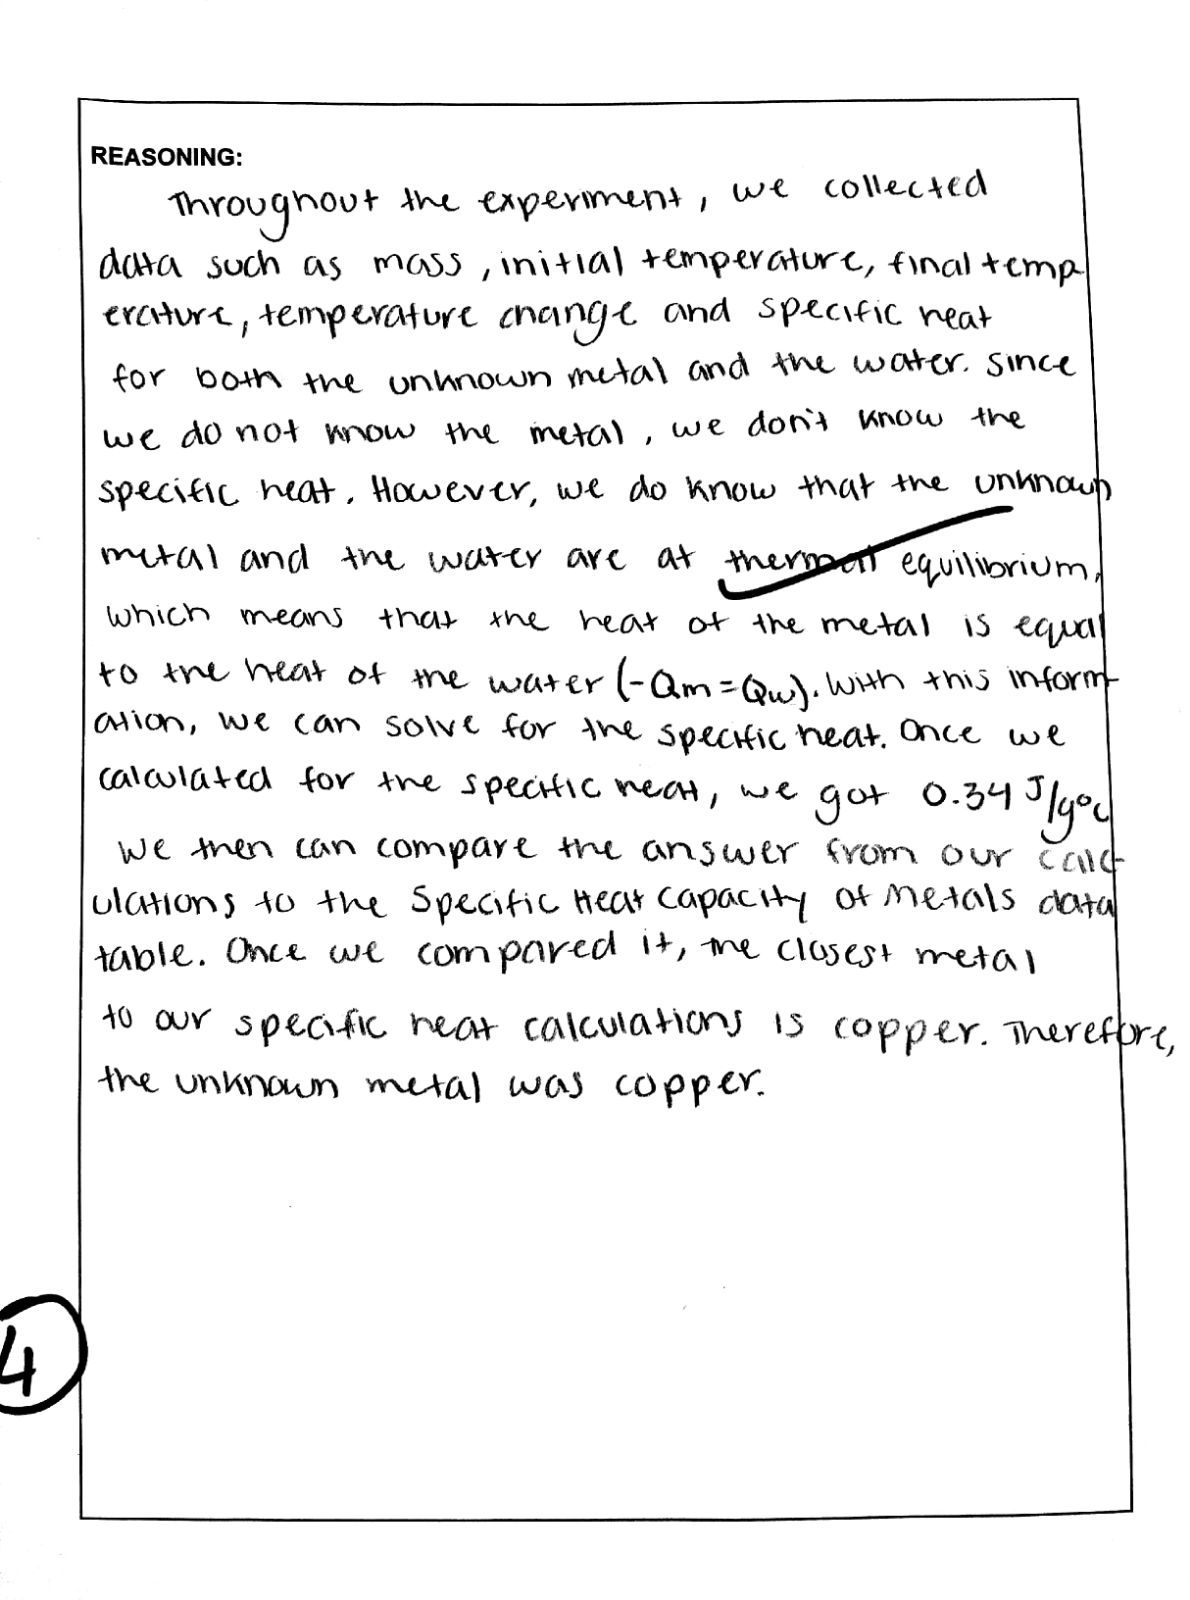 REASONING:
Throughout the experiment, we collected
data such as mass, initial temperature, final temp
erature, temperature change and specific heat
for both the unknown metal and the water. Since
we do not know the metal, we don't know the
specific heat. However, we do know that the unknown
metal and the water are at thermal equilibrium,
which means that the heat of the metal is equal
to the heat of the water (-Qm=Qw). With this inform-
ation, we can solve for the specific heat. Once we
calculated for the specific heat, we got 0.34 J/g°C
We then can compare the answer from our calc-
ulations to the Specific Heat Capacity of Metals data
table. Once we compared it, the closest metal
to our specific heat calculations is copper. Therefore,
the unknown metal was copper.
4